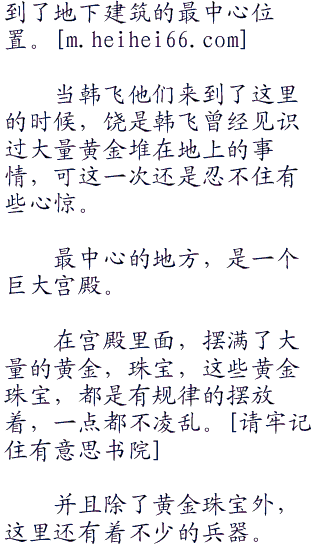 到了地下建筑的最中心位
置。[m.heihei66.com]
当韩飞他们来到了这里
的时候，饶是韩飞曾经见识
过大量黄金堆在地上的事
情，可这一次还是忍不住有
些心惊。
最中心的地方，是一个
巨大宫殿。
在宫殿里面，摆满了大
量的黄金，珠宝，这些黄金
珠宝，都是有规律的摆放
着，一点都不凌乱。[请牢记
住有意思书院]
并且除了黄金珠宝外，
这里还有着不少的兵器。